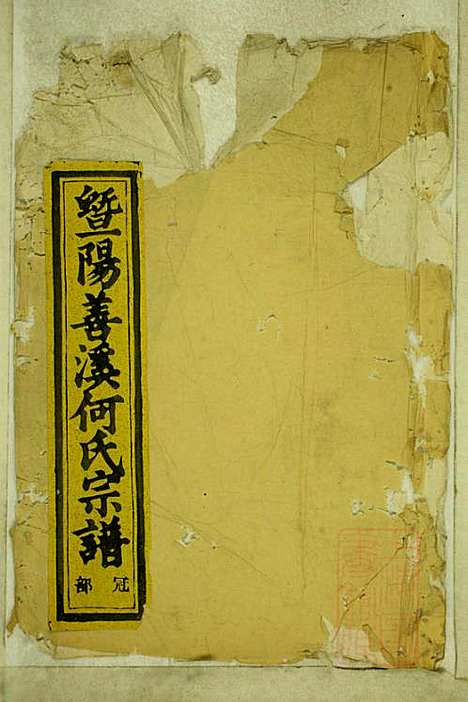 暨陽善溪何氏宗譜
冠部